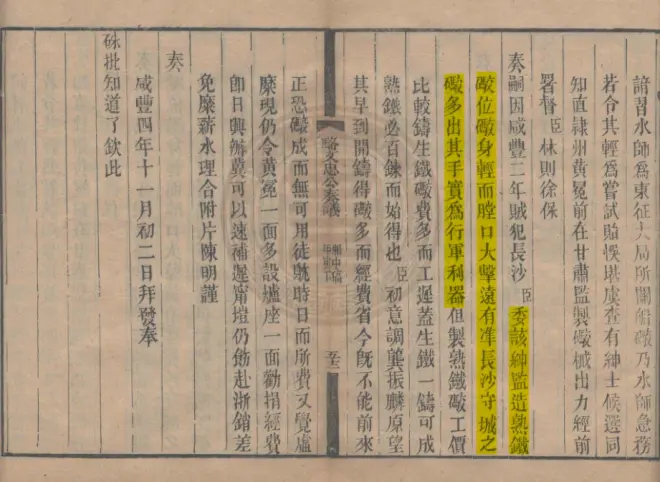 諳習水師爲東征大局所關船礮乃水師急務
若令其輕爲嘗試貽悞堪虞查有紳士候選同
知直隸州黃冕前在甘肅監製礮械出力經前
署督臣林則徐保
奏嗣因咸豐二年賊犯長沙臣委該紳監造熟鐵
礮位礮身輕而膛口大擊遠有準長沙守城之
礮多出其手實爲行軍利器但製熟鐵礮工價
比較鑄生鐵礮費多而工遲蓋生鐵一鑄可成
熟鐵必百錬而始得也臣初意調龔振麟原望
其早到開鑄得礮多而經費省今旣不能前來
駱文忠公奏議
湘中稿
正恐礮成而無可用徒躭時日而所費又覺虛
糜現仍令黃冕一面多設爐座一面勸捐經費
卽日興辦冀可以速補遲甯塏仍飭赴浙銷差
免糜薪水理合附片陳明謹
奏
咸豐四年十一月初二日拜發奉
硃批知道了欽此